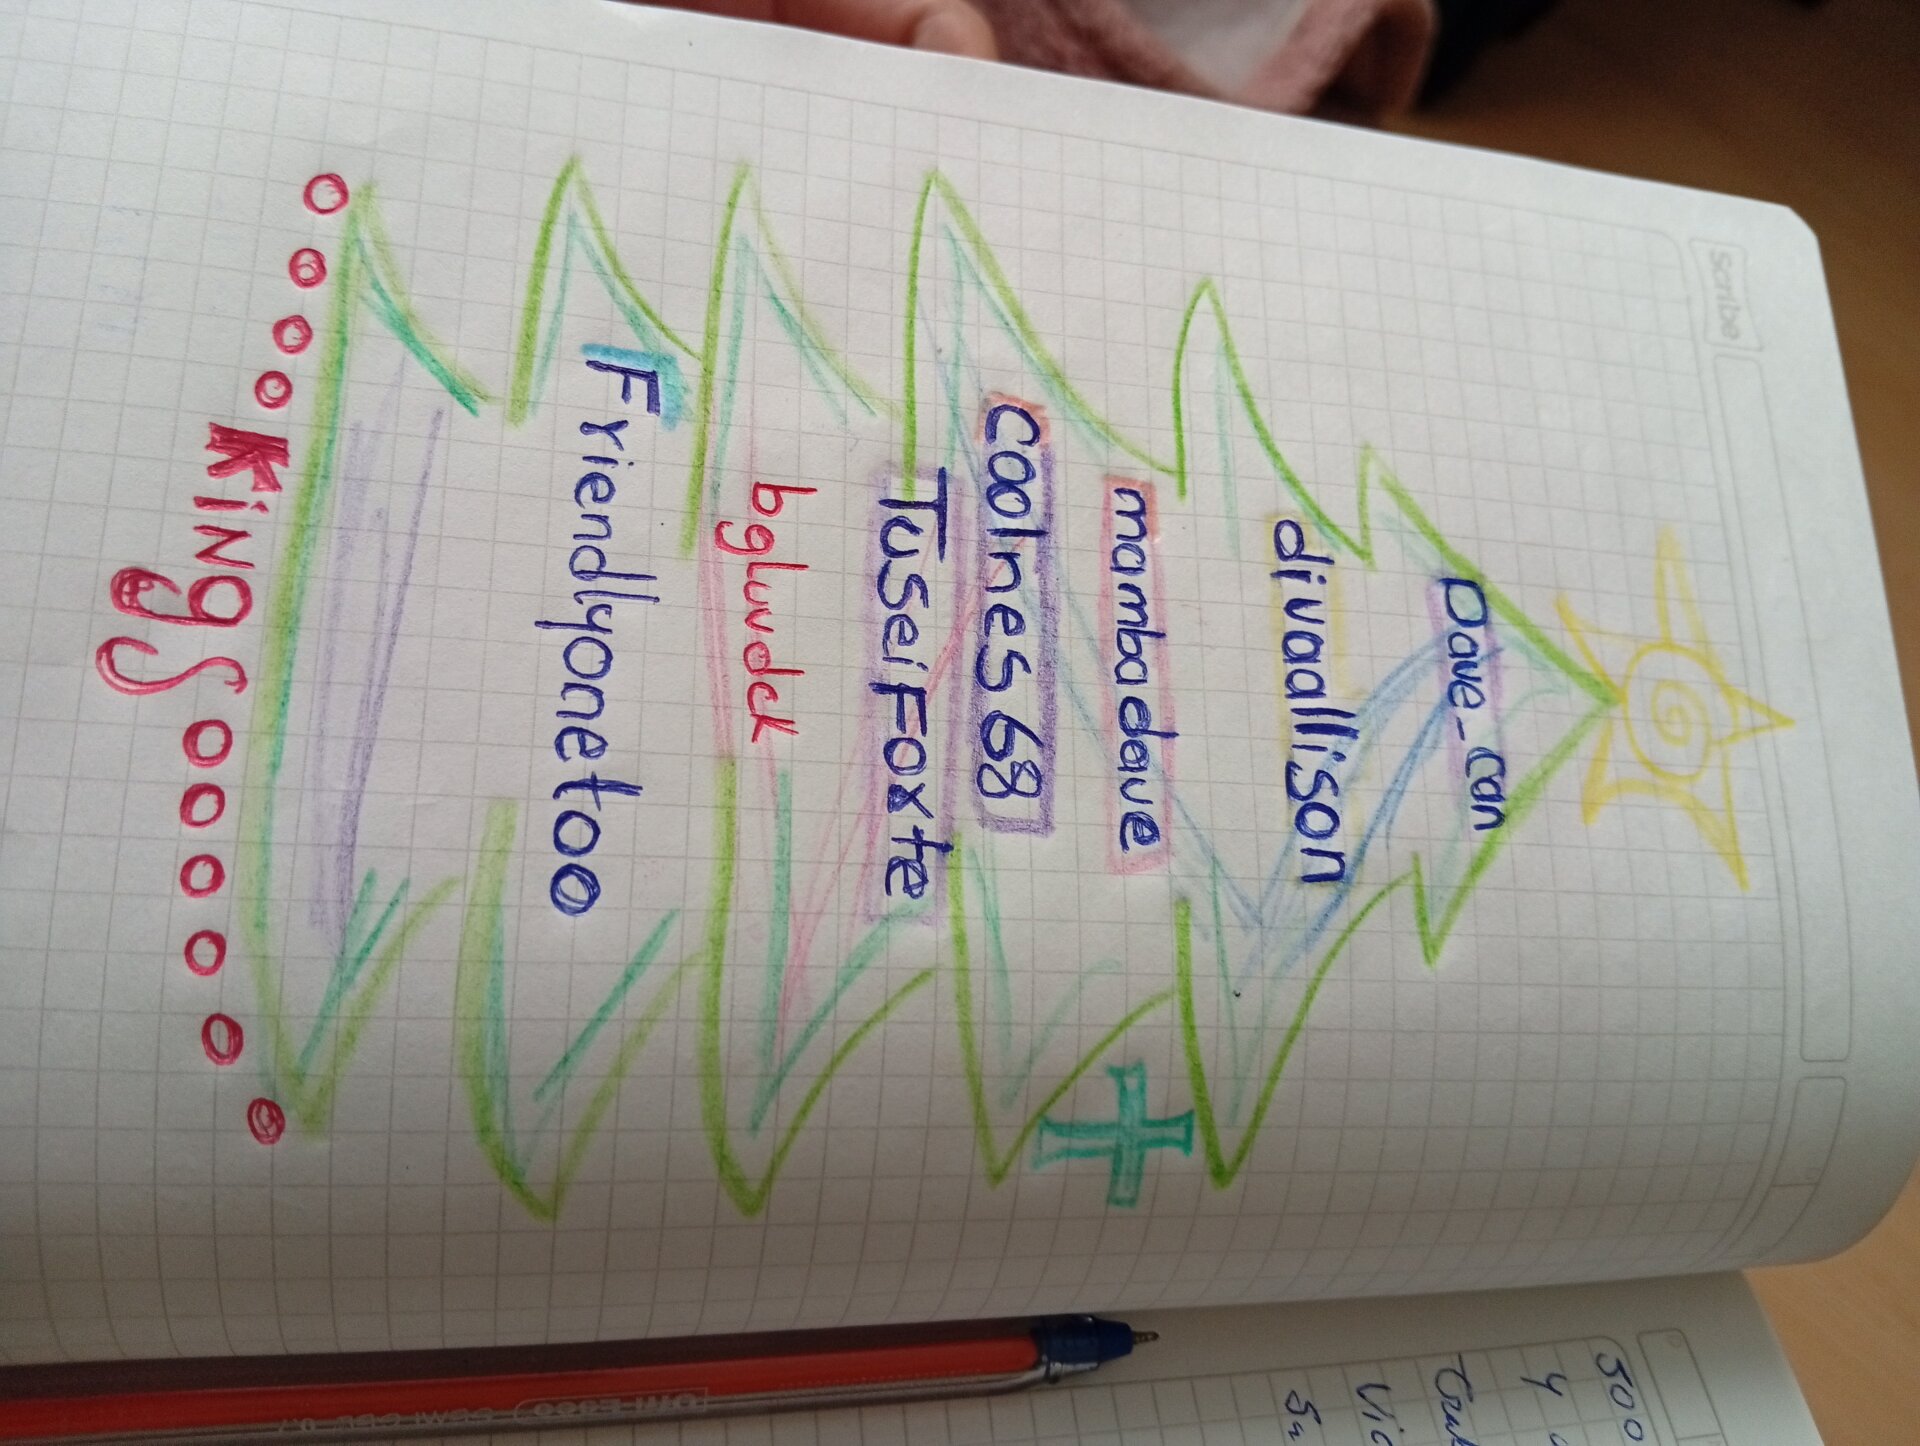 Scribe
Dave_can
divaallison
mambadave
coolnes68
TuseiFoxte
bgluvdck
Friendlyonetoo
Kings
500
y